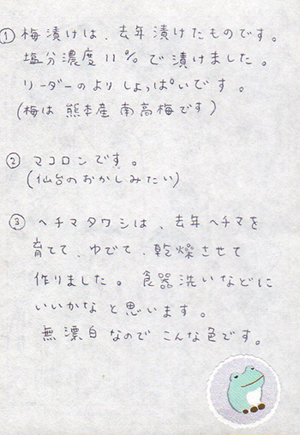 ① 梅漬けは、去年漬けたものです。
塩分濃度11%で漬けました。
リーダーのよりしょっぱいです。
(梅は 熊本産 南高梅です)
② マコロンです。
(仙台のおかしみたい)
③ ヘチマタワシは、去年ヘチマを
育てて、ゆでて、乾燥させて
作りました。食器洗いなどに
いいかなと思います。
無漂白なのでこんな色です。